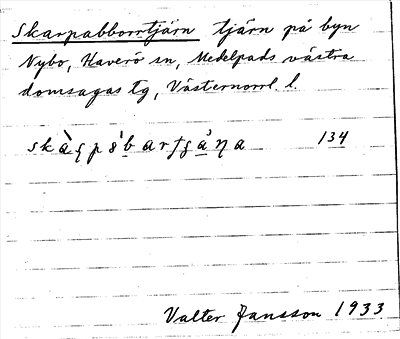 Skarpabborrtjärn tjärn på byn
Nybo, Haverö sn, Medelpads västra
domsagas tg, Västernorrl. l.
134
Valter Jansson 1933